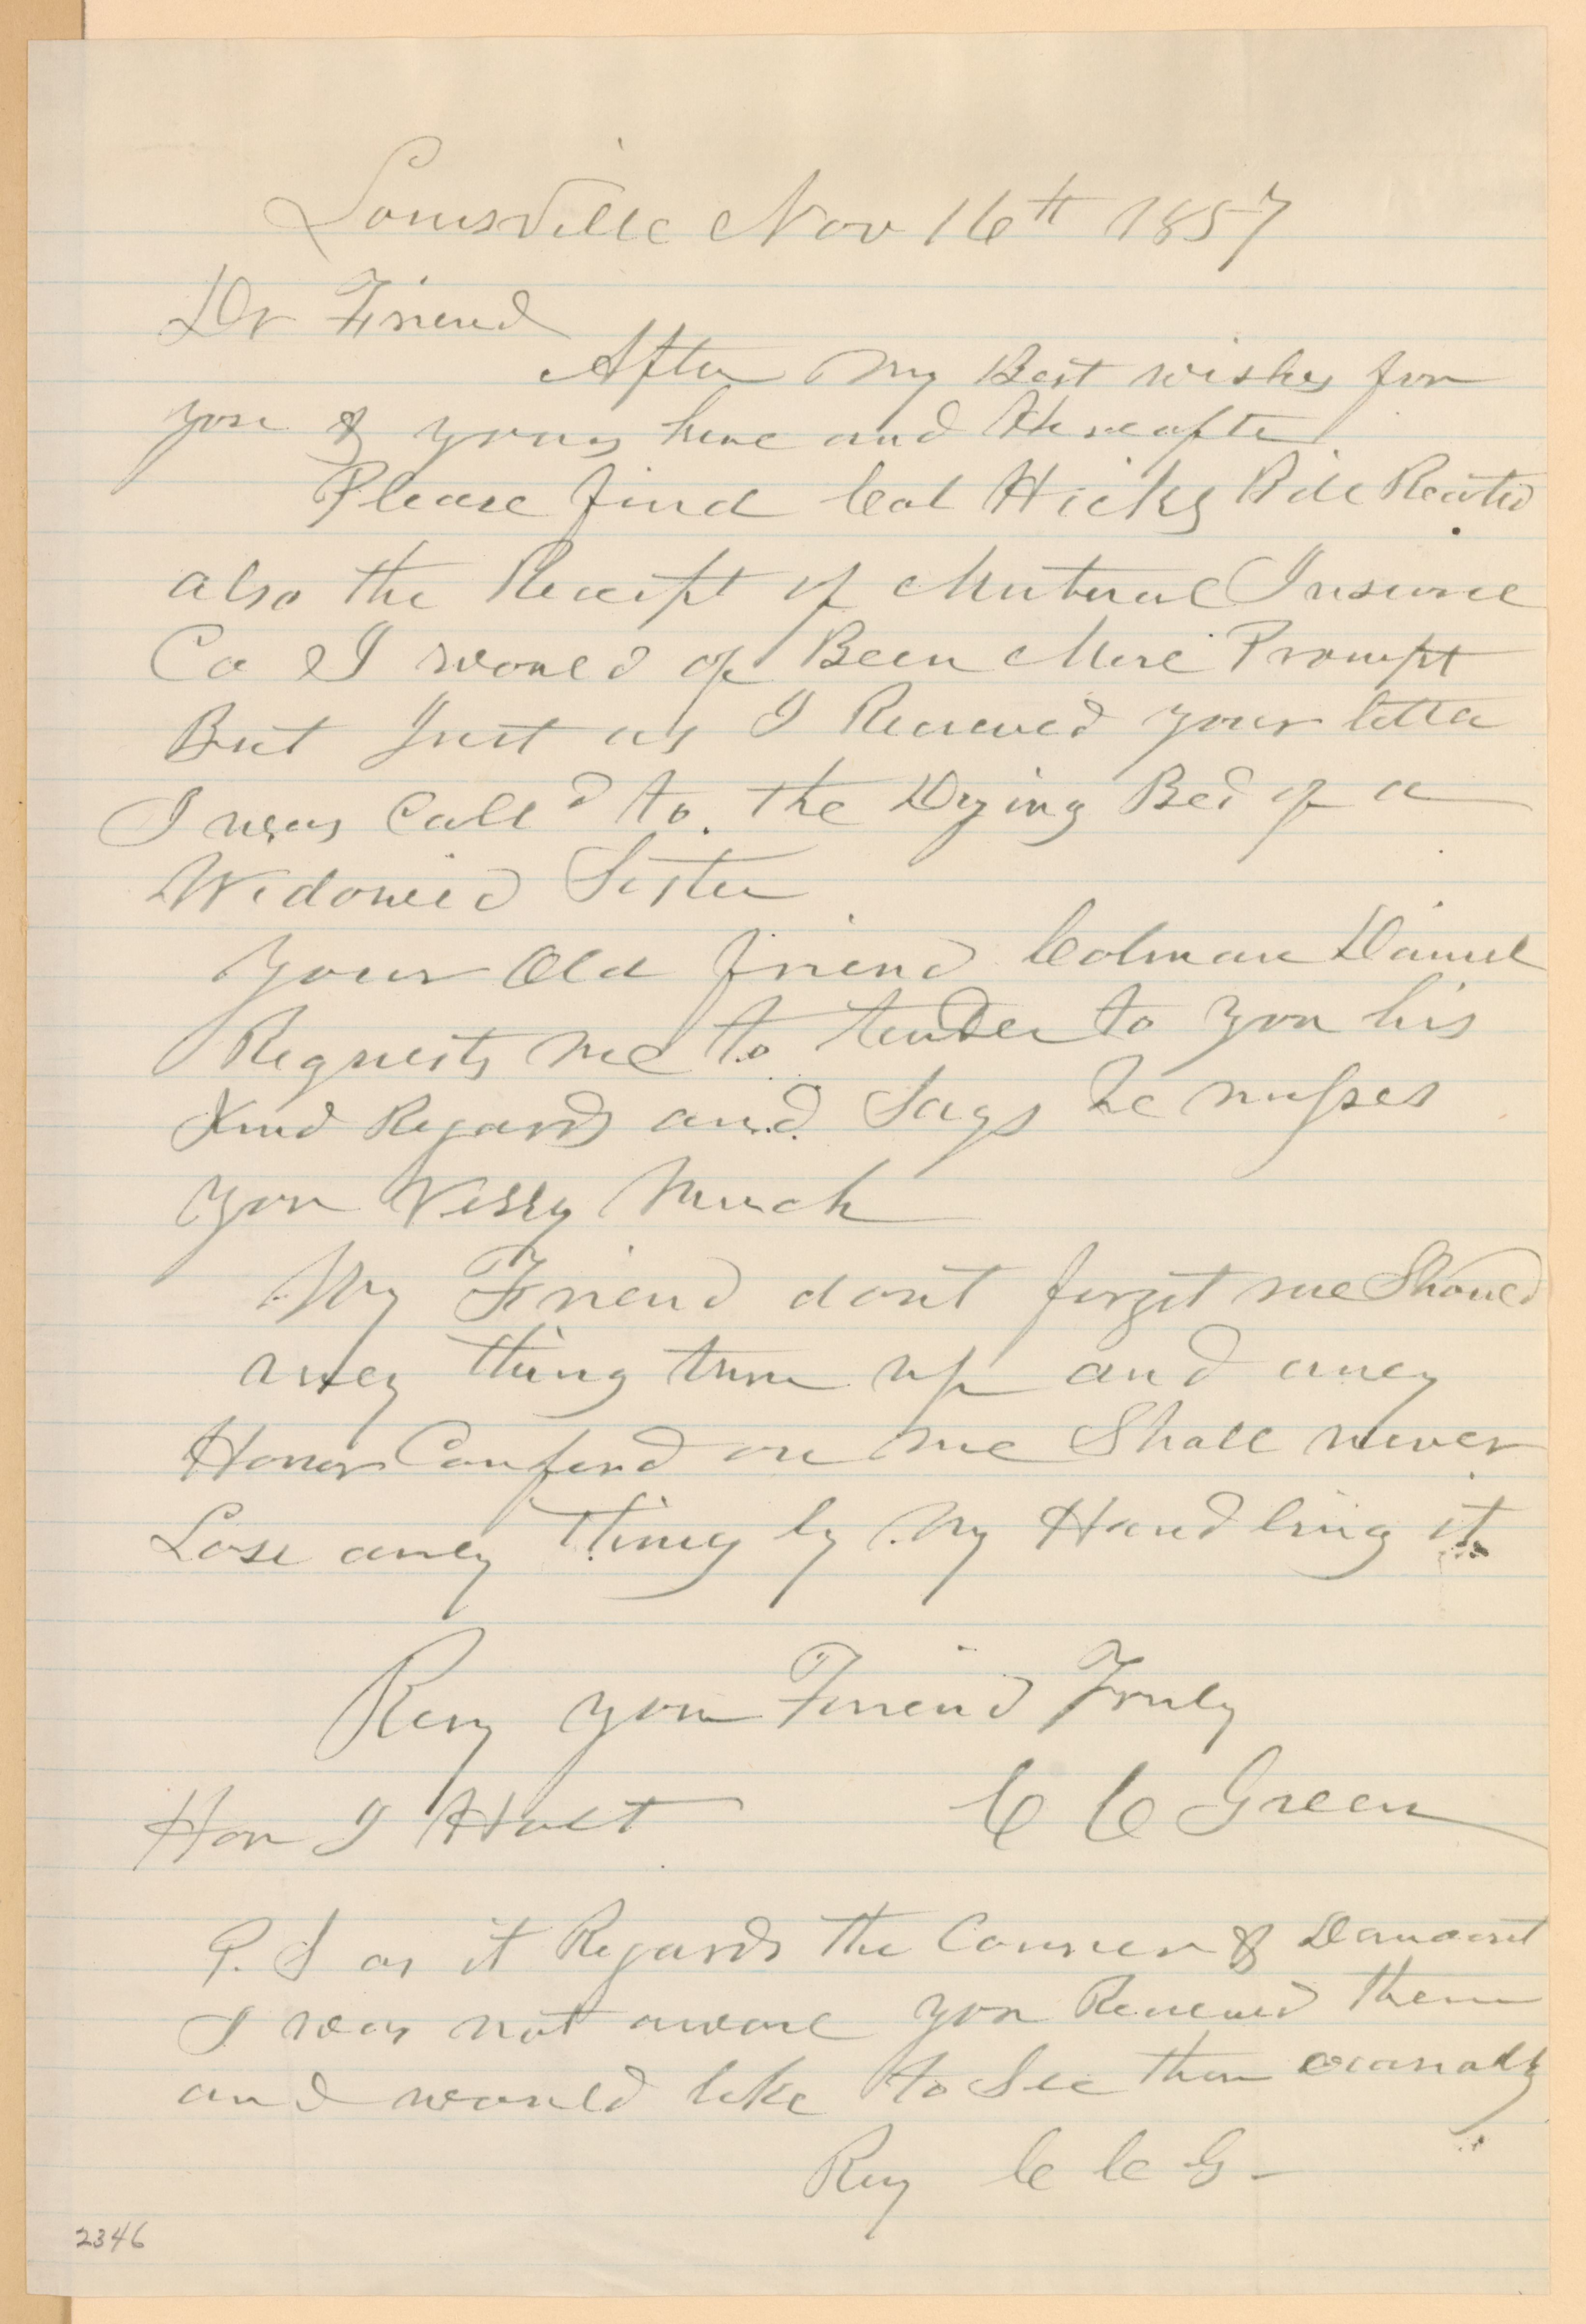 Louisville Nov 16th 1857
Dr Friend
After My Best wishes for
you & yours here and Hereafter
Please find Col Hicks Bill Recited
also the Receipt of Mutual Insurnce
Co & I would of Been More Prompt
But Just as I Received your letter
I was Call'd to the Dying Bed of a
Widowed Sister
Your Old friend Colman Daniel
Requests me to tender to you his
Kind Regards and Says he misses
you Verry Much
My Friend dont forget me Should
aney thing turn up and aney
Honor Conferd on me Shall never
Lose aney thing by My Handling it
Resy your Friend Truly
Hon J Holt C C Green
P. S as it Regards the Courier & Democrat
I was not aware you Received them
and would like to See them
Resy C C G
2346